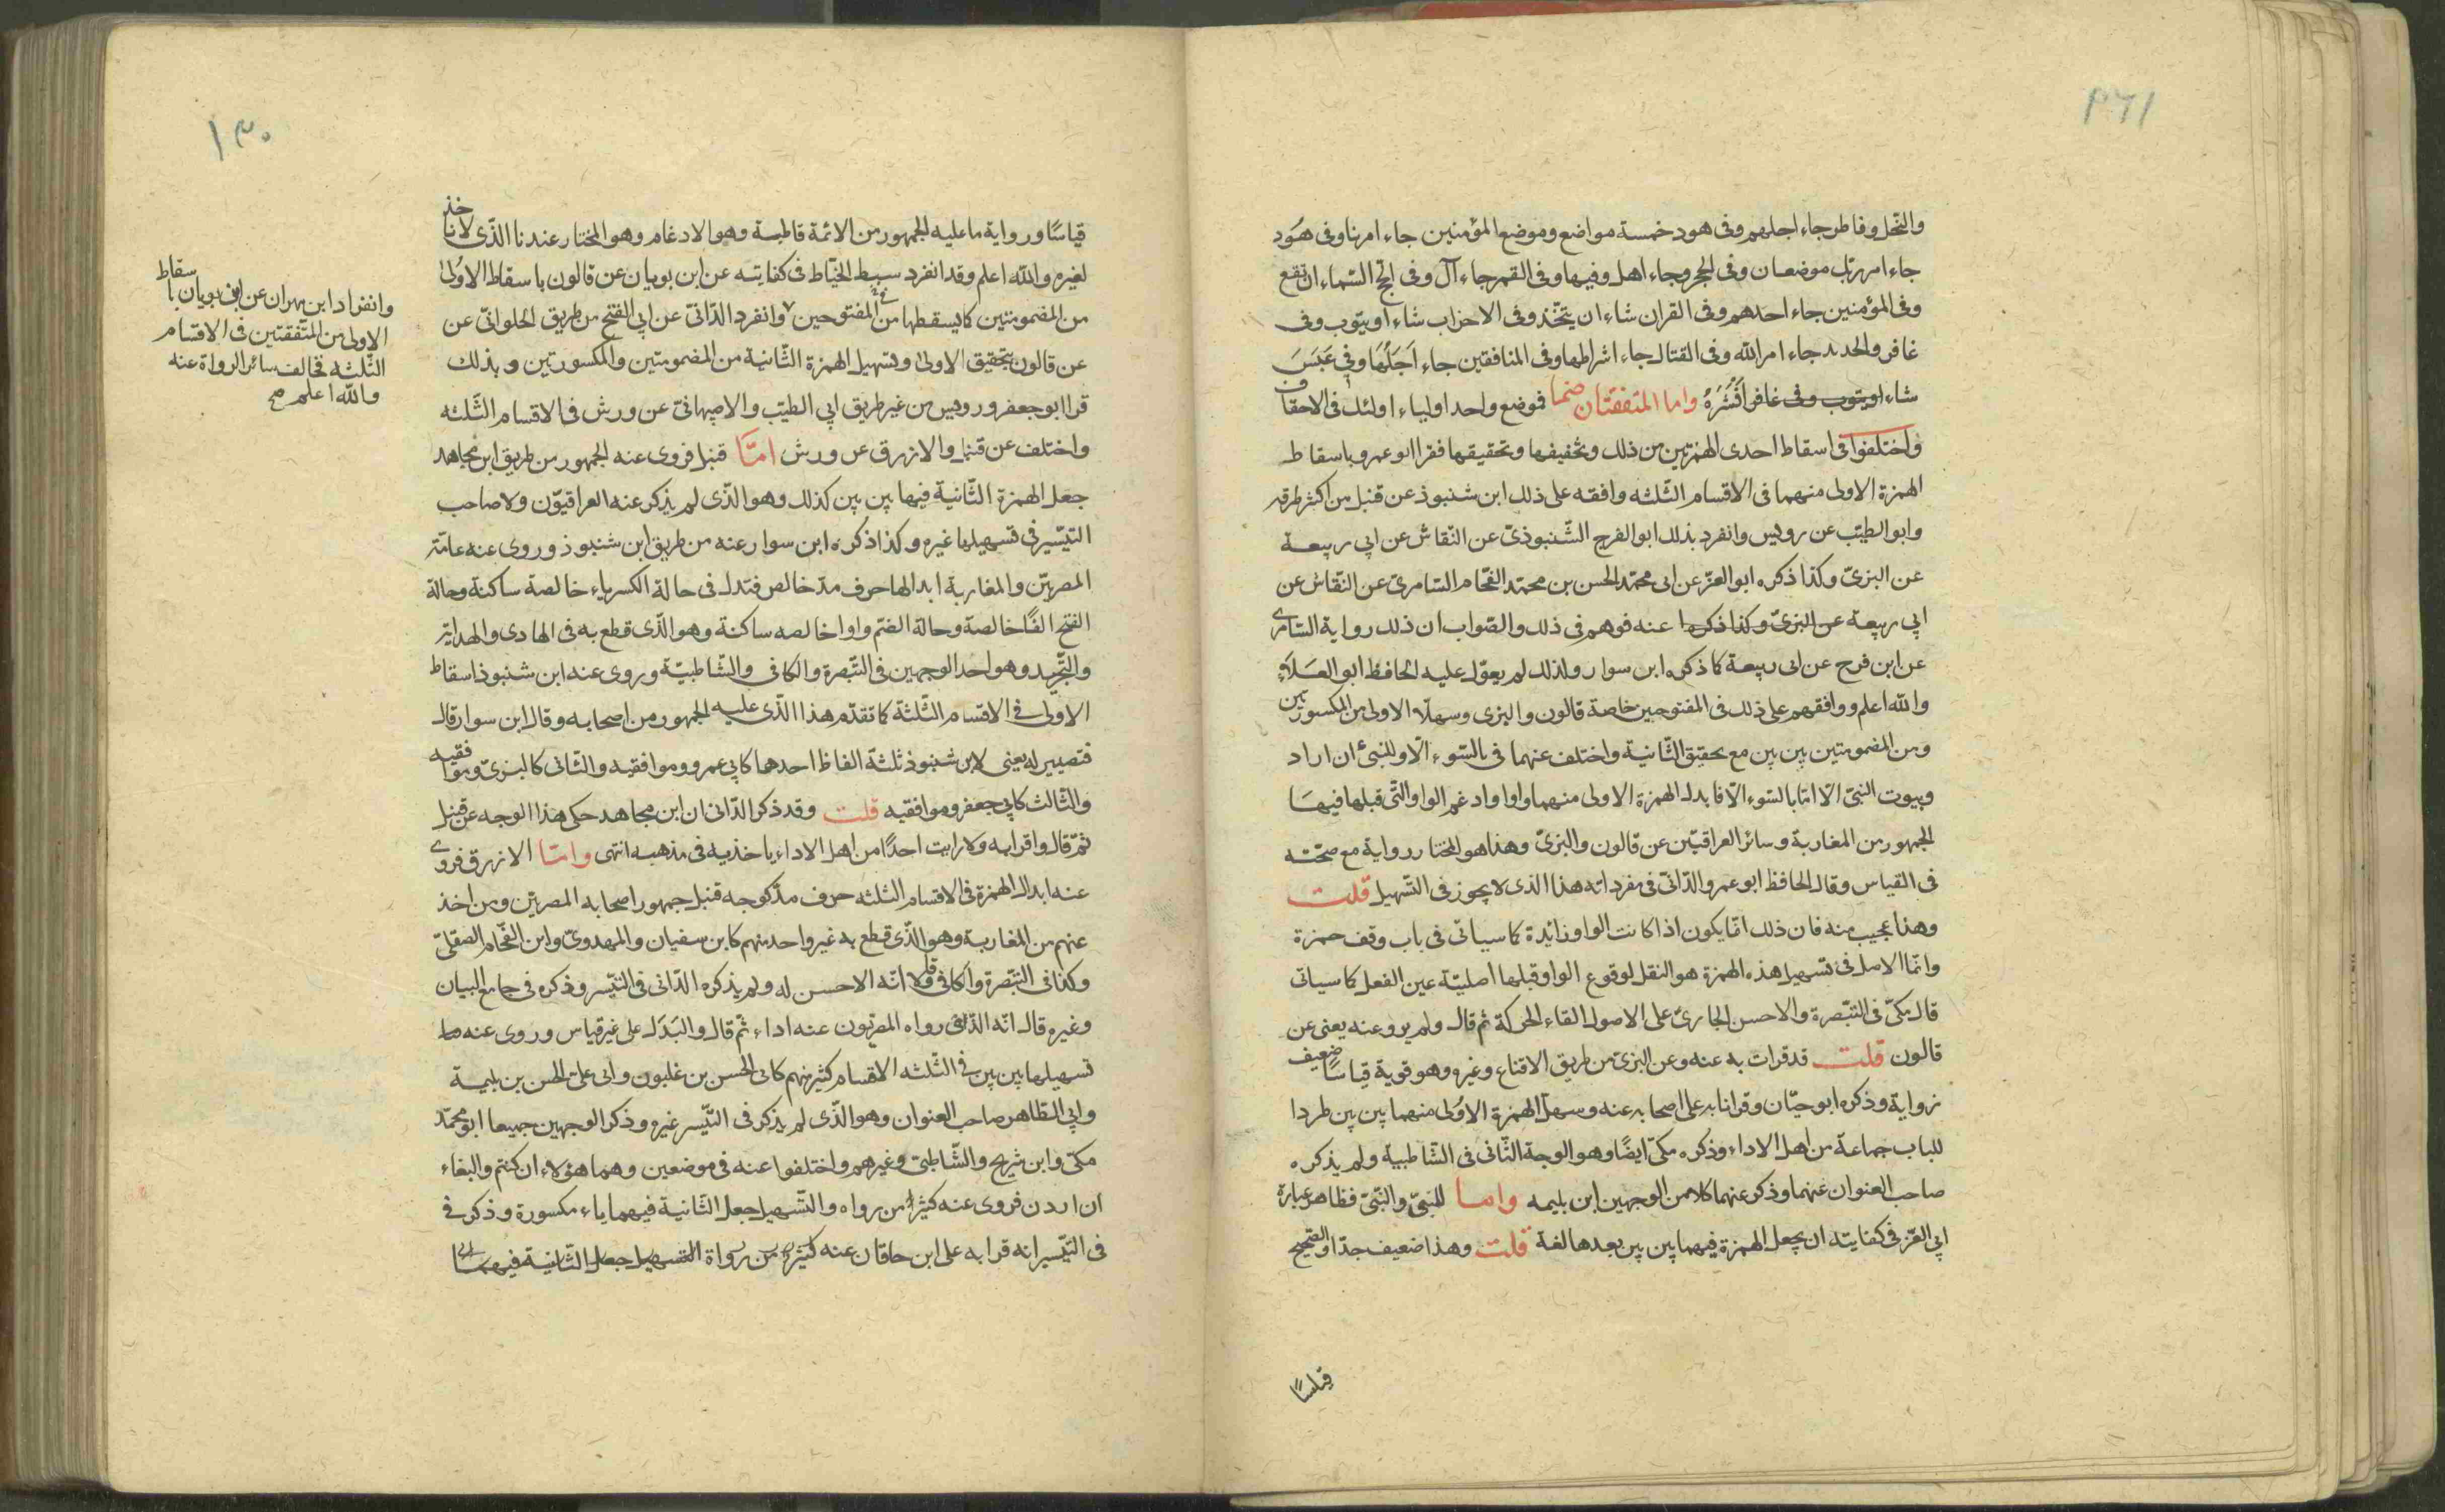 ٣٦١
والنّحل وفاطر جاء اجلهم وفى هود خمسة مواضع وموضع المؤمنين جاء امرنا وفى هُود
جاء امر ربّك موضعان وفى الحجر وجاء اهل وفيها وفى القمر جاء آل وفى الحجّ السّماء ان تقع
وفى المؤمنين جاء احدهم وفى القران شاء ان يتّخذ وفى الاحزاب شاء اويتوب وفى
غافر والحديد جاء امر الله وفى القتال جاء اشراطها وفى المنافقين جاء اَجَلُهَا وفى عَبَسَ
شاء اويتوب وفى غافر اَنْشَرَهُ واما المتفقتان ضما فموضع واحد اولياء اولئك فى الاحقاف
واختلفوا فى اسقاط احدى الهمزتين من ذلك وتخفيفها وتحقيقها فقرا ابو عمرو باسقاط
الهمزة الاولى منهما فى الاقسام الثّلثه وافقه على ذلك ابن شنبوذ عن قنبل من اكثر طرقه
وابو الطيّب عن رويس وانفرد بذلك ابو الفرج الشّنبوذىّ عن النّقاش عن ابى ربيعة
عن البزىّ وكذا ذكره ابو العزّ عن ابى محمّد الحسن بن محمّد الفحّام السّامرىّ عن النّقاش عن
ابى ربيعة عن البزىّ وكذا ذكرها عنه فوهم فى ذلك والصّواب ان ذلك رواية السّامرى
عن ابن فرح عن ابى ربيعة كما ذكره ابن سوار ولذلك لم يعوّل عليه الحافظ ابو العَلاَءِ
والله اعلم ووافقهم على ذلك فى المفتوحين خاصة قالون والبزى وسهلّا الاولى من المكسورتين
ومن المضمومتين بين بين مع تحقيق الثّانية واختلف عنهما فى بالسّوء الّا وللنبىّ ان اراد
وبيوت النبىّ الّا امّا بالسّوء الّا فابدل الهمزة الاولى منهما واوا وادغم الواو الّتى قبلها فيهَا
الجمهور من المغاربة وسائر العراقيّين عن قالون والبزىّ وهذا هو المختار رواية مع صحّته
فى القياس وقال الحافظ ابو عمرو الدّانىّ فى مفرداته هذا الذى لا يجوز فى التّسهيل قلت
وهذا عجيب منه فان ذلك انّما يكون اذا كانت الواو زائدة كما سياتى فى باب وقف حمزة
وانّما الاصل فى تسهيل هذه الهمزة هو النقل لوقوع الواو قبلها اصليّة عين الفعل كما سياتى
قال مكىّ فى التّبصرة والاحسن الجارىّ على الاصول القاء الحركة ثم قال ولم يرو عنه يعنى عن
قالون قلت قد قرات به عنه وعن البزى من طريق الاقناع وغيره وهو قوية قياسًا ضعيف
رواية وذكره ابو حيّان وقرانا به على اصحابه عنه وسهل الهمزة الاوُلى منهما بين بين طردا
للباب جماعة من اهل الاداء وذكره مكىّ ايضًا وهو الوجة الثّانى فى الشّاطبية ولم يذكره
صاحب العنوان عنهما وذكر عنهما كلا من الوجهين ابن بليمه واما للنبىّ والنّبىّ فظاهر عبارة
ابى العّز فى كفايته ان يجعل الهمزة فيهما بين بين بعدها لغة قلت وهذا ضعيف جدّا والصّحيح
قياسًا
١٣٠
قياسًا ورواية ما عليه الجمهور من الائمة قاطبة وهو الادغام وهو المختار عندنا الذّى لا ناخذ
لغيره والله اعلم وقد انفرد سبط الخيّاط فى كفايته عن ابن بويان عن قالون باسقاط الاوُلى
من المضمومتين كما يسقطها من المفتوحين وانفرد الدّانىّ عن ابى الفتح من طريق الحلوانّى عن
عن قالون بتحقيق الاولىٰ وتسهيل الهمزة الثّانية من المضمومتين والمكسورتين وبذلك
قرا ابو جعفر ورويس من غير طريق ابى الطيّب والاصبهانىّ عن ورش فى الاقسام الثّلثه
واختلف عن قنبل والازرق عن ورش امّا قنبل فروى عنه الجمهور من طريق ابن مجاهد
جعل الهمزة الثّانية فيها بين بين كذلك وهو الذّى لم يذكر عنه العراقيّون ولا صاحب
التيّسير فى تسهيلها غيره وكذا ذكره ابن سوار عنه من طريق ابن شنبوذ وروى عنه عامّة
المصريّين والمغاربة ابدالها حرف مدّ خالص فتبدل فى حالة الكسر ياء خالصة ساكنة وحالة
الفتح الفًا خالصة وحالة الضّم واوا خالصه ساكنة وهو الذّى قطع به فى الهادى والهداية
والتّجريد وهو احد الوجهين فى التّبصرة والكافى والشّاطبيّة وروى عنه ابن شنبوذ اسقاط
الاولى فى الاقسام الثّلثة كما تقدّم هذا الذّى عليه الجمهور من اصحابه وقال ابن سوار قال
فتصيير له يعنى لابن شنبوذ ثلثة الفاظ احدهما كابى عمرو وموافقيه والثّانى كالبزىّ وموافقيه
والثّالث كابى جعفر وموافقيه قلت وقد ذكر الدّانى ان ابن مجاهد حكى هذا الوجه عن قنبل
ثمّ قال واقرا به ولا رايت احدًا من اهل الاداء ياخذ به فى مذهبه انتهى وامّا الازرق فروى
عنه ابدال الهمزة فى الاقسام الثلثه حرف مدّ كوجه قنبل جمهور اصحابه المصريّين ومن اخذ
عنهم من المغاربة وهو الذّى قطع به غير واحد منهم كابن سفيان والمهدوىّ وابن الفحّام الصقلىّ
وكذا فى التبّصرة والكافى وقالا انّه الاحسن له ولم يذكره الدّانى فى التيّسير وذكره فى جامع البيان
وغيره قال انّه الذّى رواه المصريّون عنه اداء ثمّ قال والبَدَل على غير قياس وروى عنه
تسهيلها بين بين فى الثّلثه الاقسام كثير منهم كابى الحسن بن غلبون وابى علىّ الحسن بن بليمة
وابى الطّاهر صاحب العنوان وهو الذّى لم يذكر فى التّيسير غيره وذكر الوجهين جميعا ابو محمّد
مكى وابن شريح والشّاطبىّ وغيرهم واختلفوا عنه فى موضعين وهما هؤلاء ان كنتم والبغاء
ان اردن فروى عنه كثير من رواه والتّسهيل جعل الثّانية فيهما ياء مكسورة وذكر فى
فى التّيسير انه قرا به على ابن خاقان عنه كثير من رواة التسهيل جعل الثّانية فيهما
وانفراد ابن مهران عن ابن بويان باسقاط
الاولى من المتّفقتين فى الاقسام
الثّلثه فخالف سائر الرواة عنه
والله اعلم صح